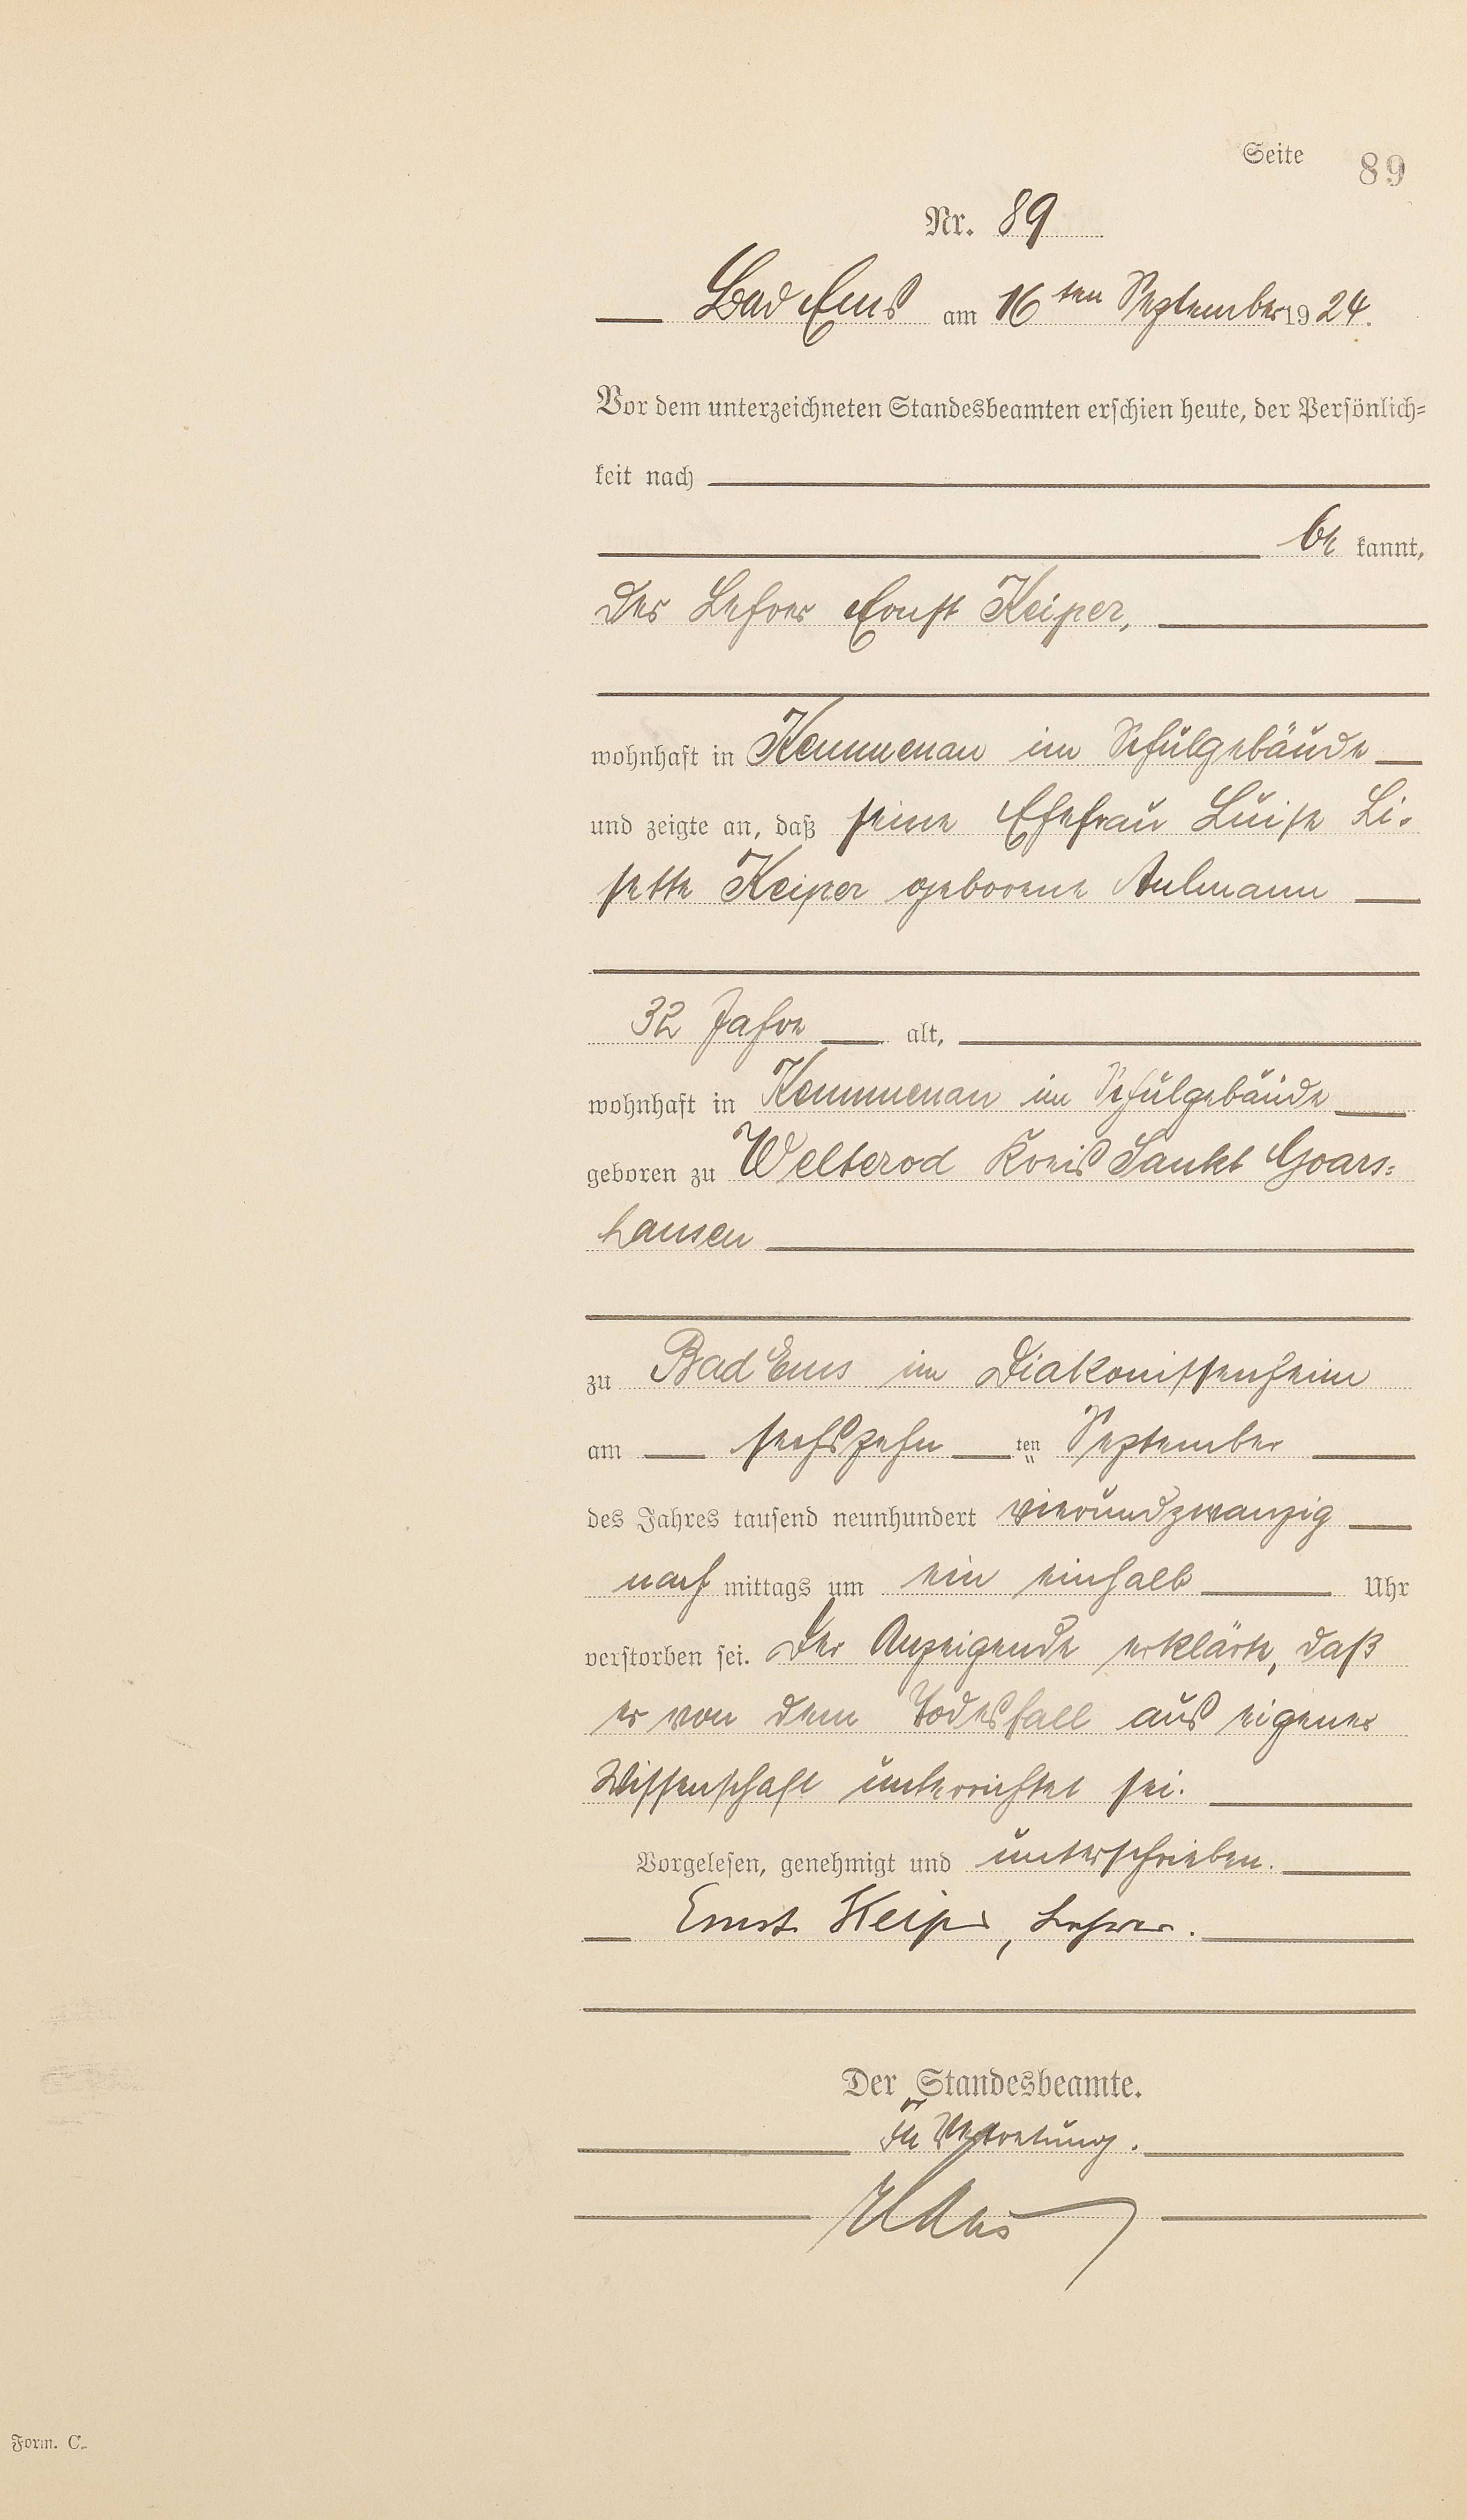 Seite 89
Nr. 89
Bad Ems am 16ten September 1924.
Vor dem unterzeichneten Standesbeamten erschien heute, der Persönlich=
keit nach
be kannt,
der Lehrer Ernst Keiper,
wohnhaft in Kemmenau im Schulgebäude
und zeigte an, daß seine Ehefrau Luise Li-
sette Keiper geborene Aulmann
32 Jahre alt,
wohnhaft in Kemmenau im Schulgebäude
geboren zu Welterod Kreis Sankt Goars=
hausen
zu Bad Ems im Diakonissenheim
am sechszehn ten September
des Jahres tausend neunhundert vierundzwanzig
nach mittags um ein einhalb Uhr
verstorben sei. Der Anzeigende erklärte, daß
er von dem Todesfall aus eigener
Wissenschaft unterrichtet sei.
Vorgelesen, genehmigt und unterschrieben.
Ernst Keiper, Lehrer.
Der Standesbeamte.
In Vertretung.
Form. C.